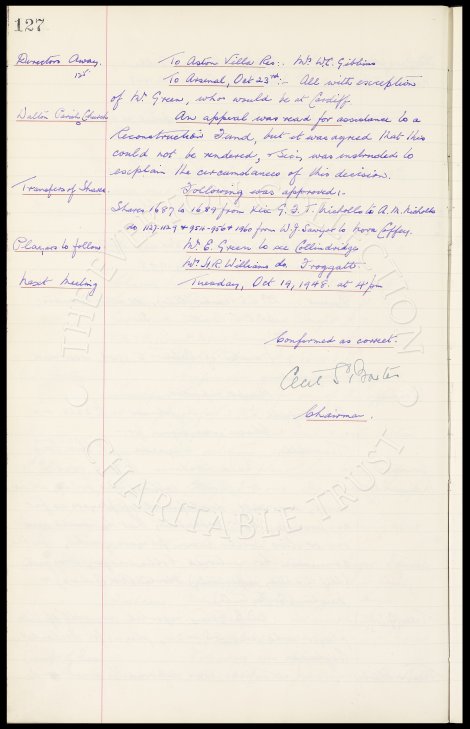 127
Directors Away. To Aston Villa Res:. Mr W.C. Gibbins
To Arsenal, Oct 23rd:- All with exception
of Mr Green, who would be at Cardiff.
Walton Parish Church An appeal was read for assistance to a
Reconstruction Fund, but it was agreed that this
could not be rendered, & Secy, was instructed to
explain the circumstances of this decision.
Transfers of Shares. Following was approved:-
Shares 1687 to 1689 from G. F. J. Nicholls to A. M. Nicholls
do 1127-1129 & 954-956 & 1960 from W. J. Sawyer to Nora Caffery.
Players to follow Mr E. Green to see Collindridge
Mr H.R. Williams do. Froggatt.
Next Meeting Tuesday, Oct 19, 1948. at 4 pm
Confirmed as correct.
Cecil S. Baxter
Chairman.
THE EVERTON COLLECTION
CHARITABLE TRUST